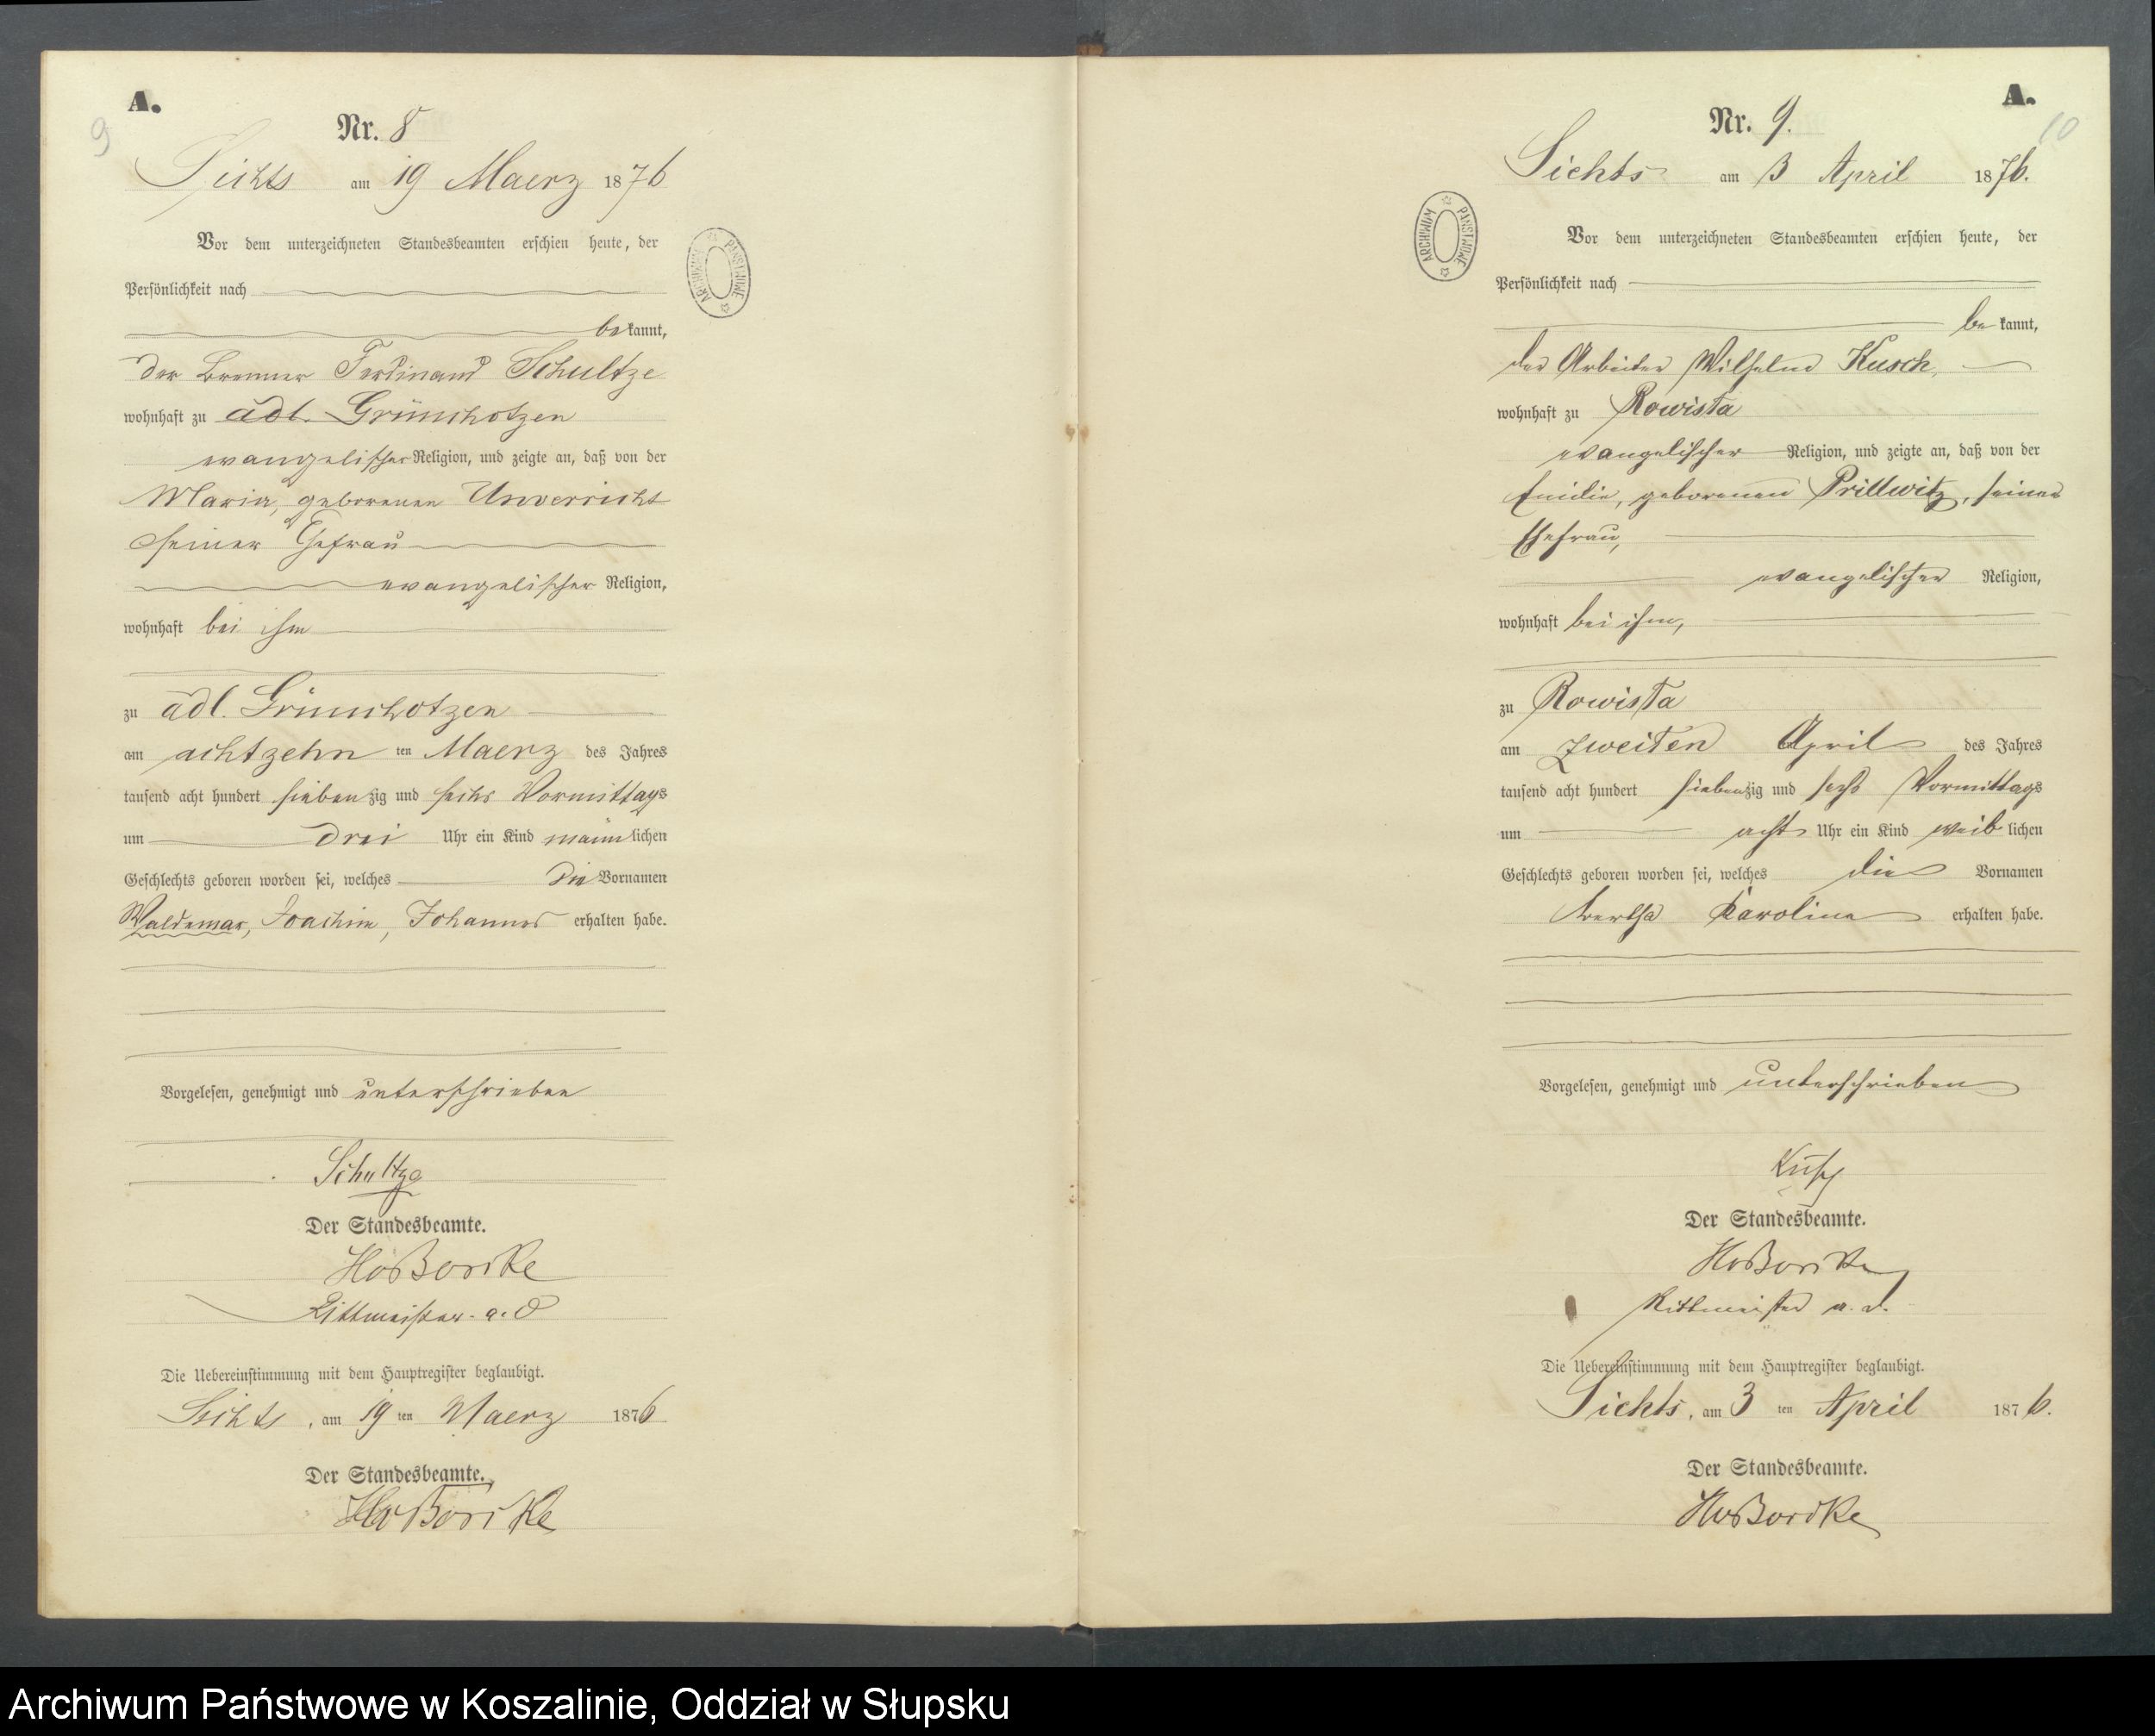 A.
9
Nr. 8
Sichts am 19 Maerz 1876
Vor dem unterzeichneten Standesbeamten erschien heute, der
Persönlichkeit nach
bekannt,
der Brenner Ferdinand Schultze
wohnhaft zu adl. Grünchotzen
evangelischer Religion, und zeigte an, daß von der
Maria, geborenen Unverricht
seiner Ehefrau
evangelischer Religion,
wohnhaft bei ihm
zu adl. Grünchotzen
am achtzehn ten Maerz des Jahres
tausend acht hundert siebenzig und sechs Vormittags
um drei Uhr ein Kind männlichen
Geschlechts geboren worden sei, welches die Vornamen
Waldemar, Joachim, Johannes erhalten habe.
Vorgelesen, genehmigt und unterschrieben
Schultze
Der Standesbeamte.
Rittmeister a. D
Die Uebereinstimmung mit dem Hauptregister beglaubigt.
Sichts, am 19 ten Maerz 1876
Der Standesbeamte.
A.
10
Nr. 9.
Sichts am 3 April 1876.
ARCHIWUM PAŃSTWOWE
Vor dem unterzeichneten Standesbeamten erschien heute, der
Persönlichkeit nach
bekannt,
der Arbeiter Wilhelm Kusch,
wohnhaft zu Rowista
evangelischer Religion, und zeigte an, daß von der
Emilie, geborenen Prillwitz, seiner
Ehefrau,
evangelischer Religion,
wohnhaft bei ihm,
zu Rowista
am zweiten April des Jahres
tausend acht hundert siebenzig und sechs Vormittags
um acht Uhr ein Kind weiblichen
Geschlechts geboren worden sei, welches die Vornamen
Bertha Karoline erhalten habe.
Vorgelesen, genehmigt und unterschrieben
Kusch
Der Standesbeamte.
Rittmeister a. D.
Die Uebereinstimmung mit dem Hauptregister beglaubigt.
Sichts, am 3 ten April 1876.
Der Standesbeamte.
Archiwum Państwowe w Koszalinie, Oddział w Słupsku